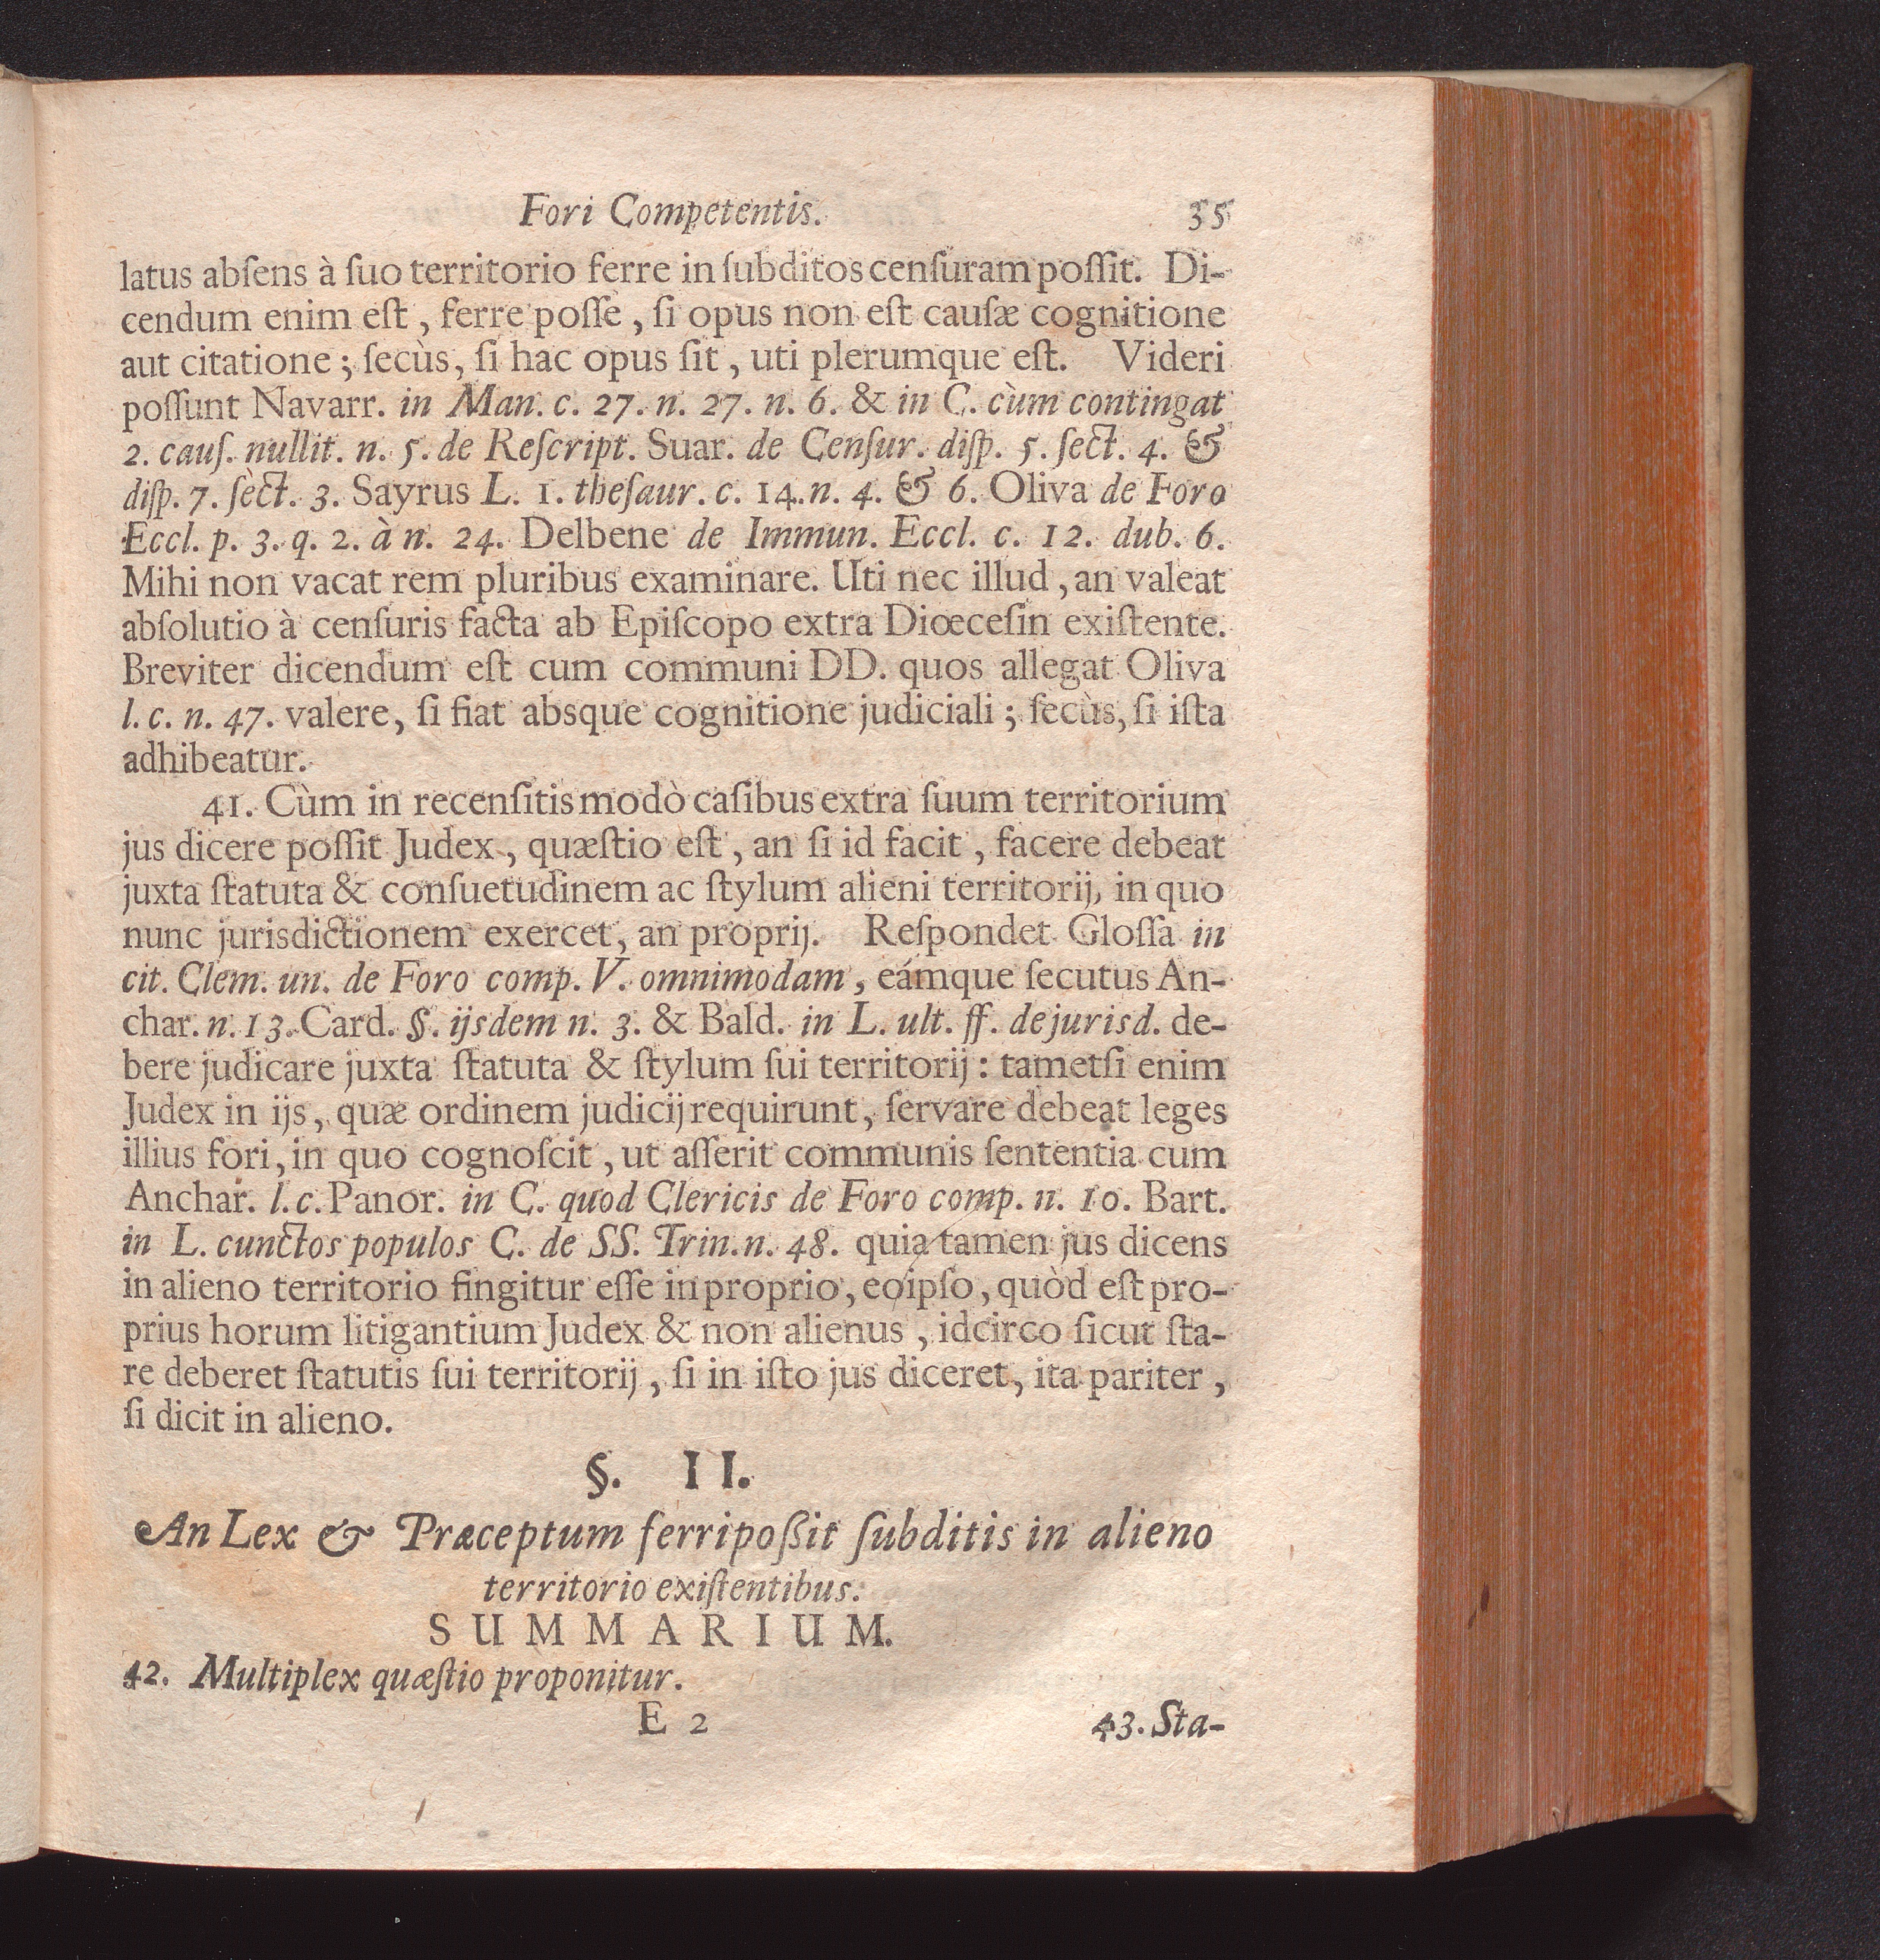 Fori Competentis. 35
latus abſens à ſuo territorio ferre in ſubditos cenſuram poſſit. Di-
cendum enim eſt, ferre poſſe, ſi opus non eſt cauſæ cognitione
aut citatione; ſecùs, ſi hac opus ſit, uti plerumque eſt. Videri
poſſunt Navarr. in Man. c. 27. n. 27. n. 6. & in C. cùm contingat
2. cauſ. nullit. n. 5. de Reſcript. Suar. de Cenſur. diſp. 5. ſect. 4. &
diſp. 7. ſect. 3. Sayrus L. 1. theſaur. c. 14. n. 4. & 6. Oliva de Foro
Eccl. p. 3. q. 2. à n. 24. Delbene de Immun. Eccl. c. 12. dub. 6.
Mihi non vacat rem pluribus examinare. Uti nec illud, an valeat
abſolutio à cenſuris facta ab Epiſcopo extra Diœceſin exiſtente.
Breviter dicendum eſt cum communi DD. quos allegat Oliva
l. c. n. 47. valere, ſi fiat absque cognitione judiciali; ſecùs, ſi iſta
adhibeatur.
41. Cùm in recenſitis modò caſibus extra ſuum territorium
jus dicere poſſit Judex, quæſtio eſt, an ſi id facit, facere debeat
juxta ſtatuta & conſuetudinem ac ſtylum alieni territorij, in quo
nunc jurisdictionem exercet, an proprij. Reſpondet Gloſſa in
cit. Clem. un. de Foro comp. V. omnimodam, eámque ſecutus An-
char. n. 13. Card. §. ijsdem n. 3. & Bald. in L. ult. ff. de jurisd. de-
bere judicare juxta ſtatuta & ſtylum ſui territorij: tametſi enim
Judex in ijs, quæ ordinem judicij requirunt, ſervare debeat leges
illius fori, in quo cognoſcit, ut aſſerit communis ſententia cum
Anchar. l. c. Panor. in C. quod Clericis de Foro comp. n. 10. Bart.
in L. cunctos populos C. de SS. Trin. n. 48. quia tamen jus dicens
in alieno territorio fingitur eſſe in proprio, eo ipſo, quòd eſt pro-
prius horum litigantium Judex & non alienus, idcirco ſicut ſta-
re deberet ſtatutis ſui territorij, ſi in iſto jus diceret, ita pariter,
ſi dicit in alieno.
§. II.
An Lex & Præceptum ferri poßit ſubditis in alieno
territorio exiſtentibus.
SUMMARIUM.
42. Multiplex quæſtio proponitur.
E 2 43. Sta-